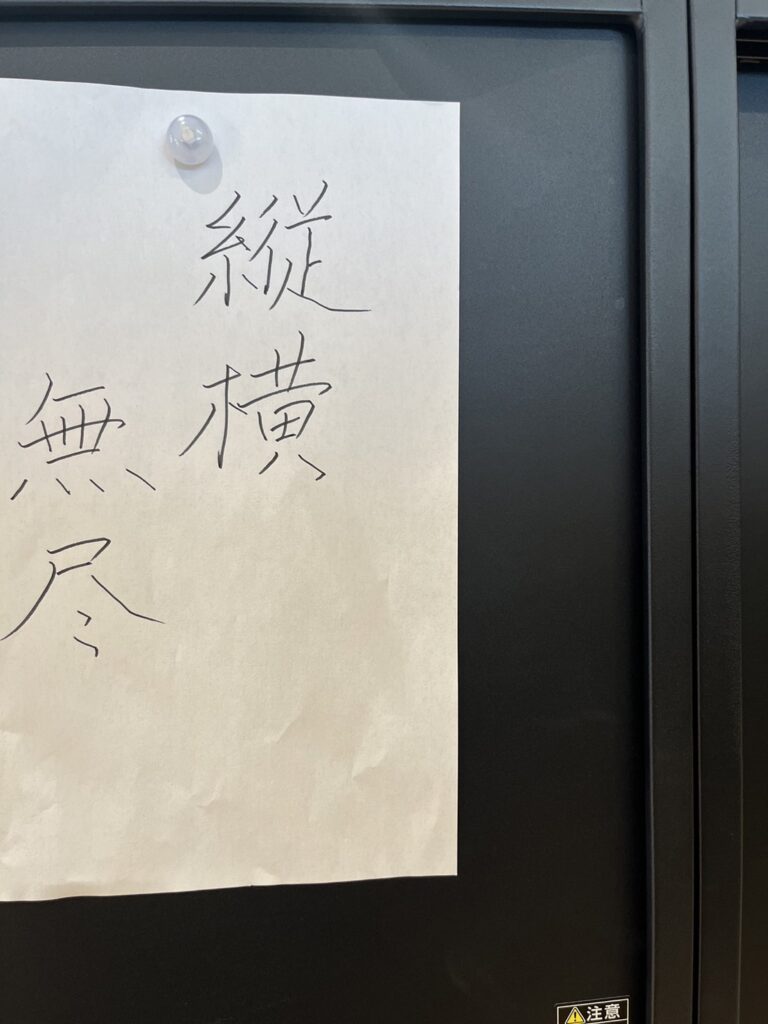 縦横
無尽
注意